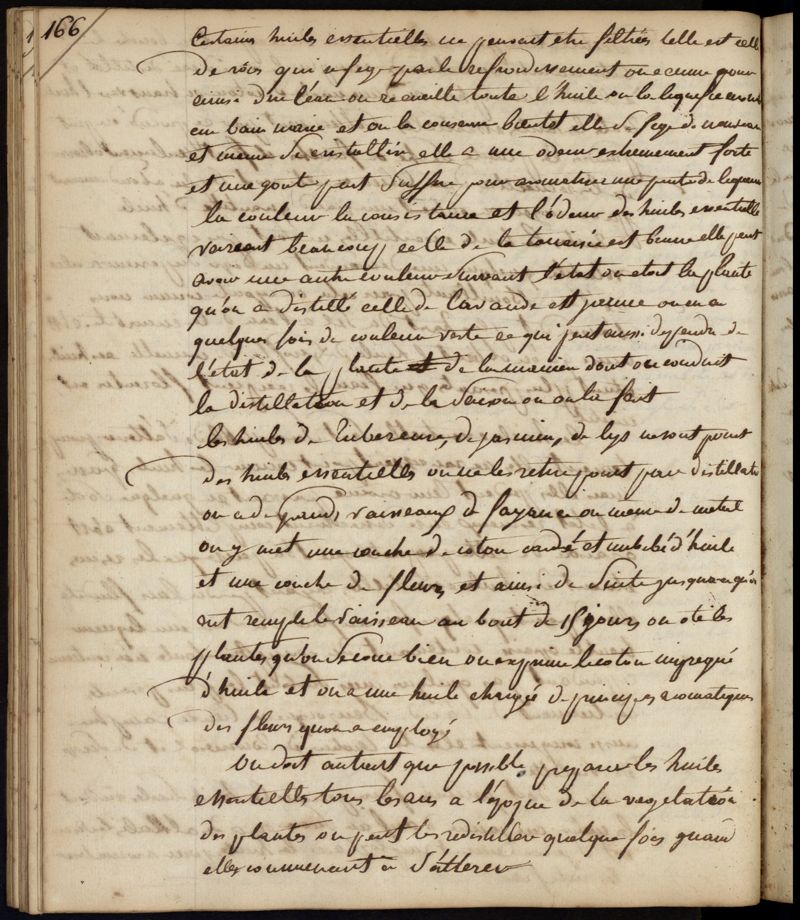 166
Certaines huiles essentielles ne peuvent etre filtrées telle est celle
de roses qui se fige par le refroidissement on ecume pour
ainsi dire l'eau on recueille toute l'huile on la liquefie
au bain marie et on la conserve bientot elle se fige de nouveau
et meme se cristallise elle a une odeur extremement forte
et une goute peut suffire pour aromatiser une pinte de liqueur
la couleur la consistance et l'odeur des huiles essentielle
varient beaucoup celle de la tanaisie est brune elle peut
avoir une autre couleur suivant l'état ou etoit la plante
qu'on a distillé celle de lavande est jaune on en a
quelques fois de couleur verte ce qui peut aussi dependre de
l'état de la plante et de la maniere dont on conduit
la distillation et de la saison ou on la fait
les huiles de tubereuse, de jasmin, de lys ne sont point
des huiles essentielles on ne les retire point par distillation
on a de grands vaisseaux de fayance ou meme de metal
on y met une couche de coton cardé et imbibé d'huile
et une couche de fleurs et ainsi de suite jusqu'a ce qu'on
ait rempli le vaisseau au bout de 15 jours on ote les
plantes qu'on secoue bien on exprime le coton impregné
d'huile et on a une huile chargée de principes aromatiques
des fleurs qu'on a employé
On doit autant que possible preparer les huiles
essentielles tous les ans a l'époque de la vegetation
des plantes on peut les redistiller quelque fois quand
elles commencent a s'alterer